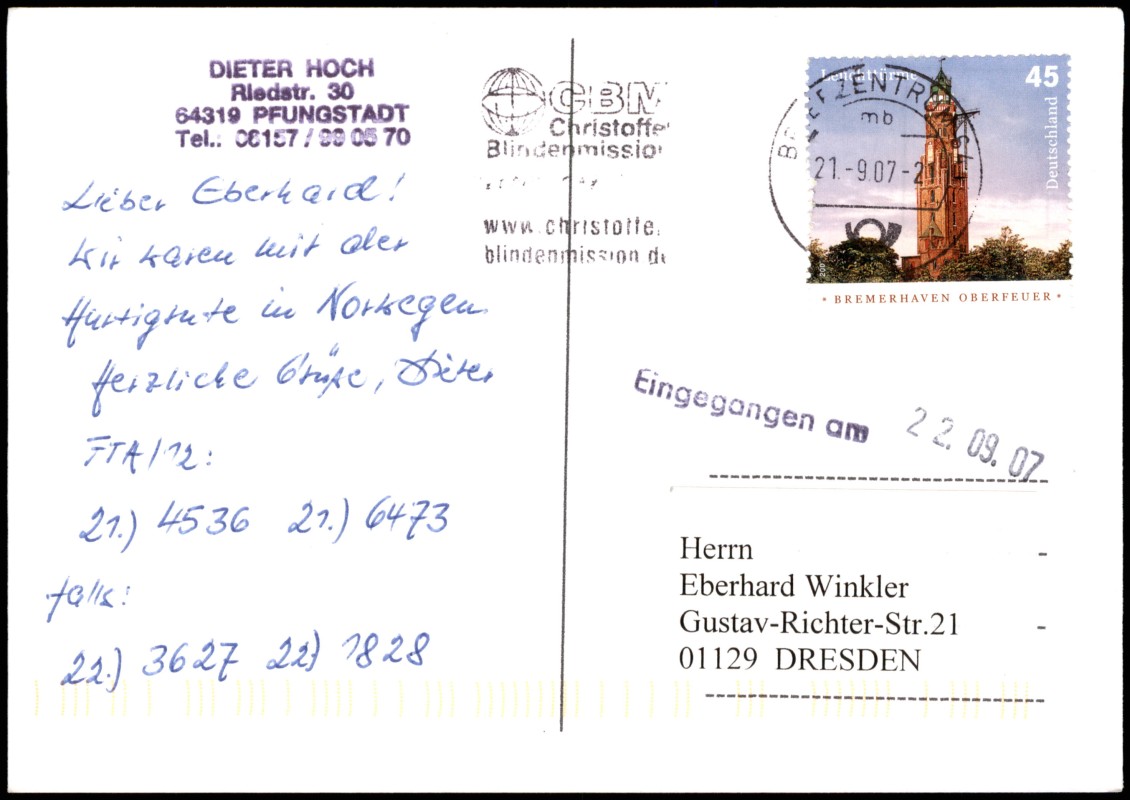 DIETER HOCH
Riedstr. 30
64319 PFUNGSTADT
Tel.: 06157 / 99 05 70
Lieber Eberhard!
Wir waren mit der
Hurtigrute in Norwegen.
Herzliche Grüße, Dieter
FTA/12:
21.) 4536 21.) 6473
falls:
22.) 3627 22) 1828
CBM
Christoffe
Blindenmission
www.christoffe
blindenmission.de
BRIEFZENTRUM
mb
21.-9.07-2
Leuchttürme
45
Deutschland
* BREMERHAVEN OBERFEUER *
Eingegangen am 22.09.07
Herrn
Eberhard Winkler
Gustav-Richter-Str.21
01129 DRESDEN